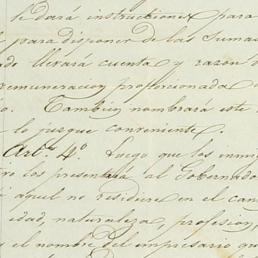 le dará instrucciones para
para disponer de las sumas
llevará cuenta y razon
remuneracion proporcionada
Tambien nombrará este
lo juzgue conveniente.
Art.º 4.º Luego que los inmi
los presentará al Gobernado
aquel no residiere en el can
idad, naturaleza, profesion,
el nombre del empresario que